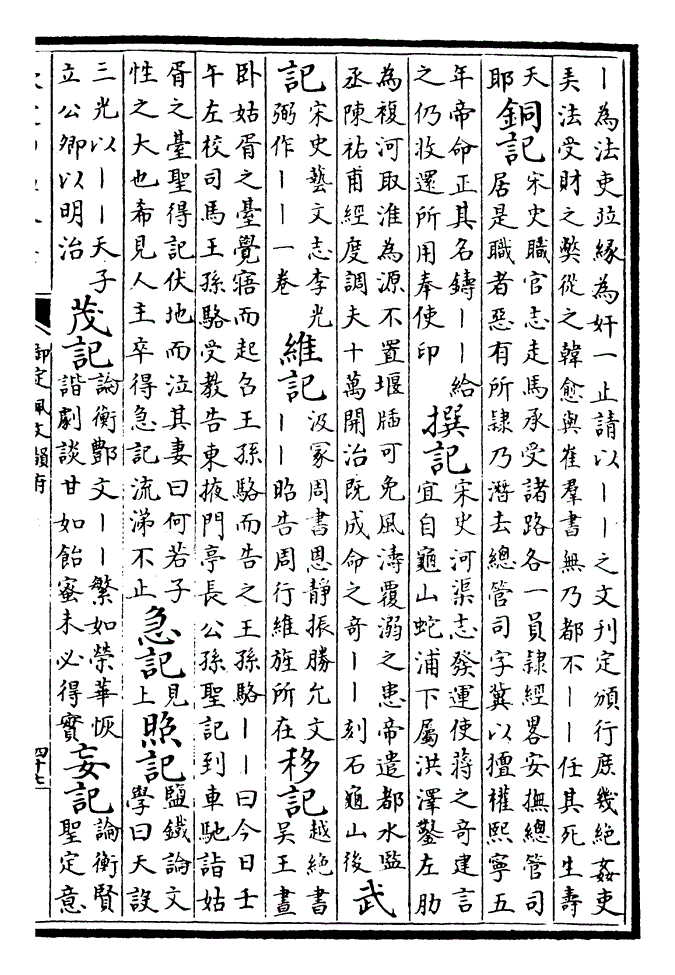 丨為法吏竝緣為奸一止請以丨丨之文刊定頒行庶幾絶姦吏
弄法受財之弊從之韓愈與崔羣書無乃都不丨丨任其死生壽
天
耶
銅記
宋史職官志走馬承受諸路各一員隷經畧安撫總管司
居是職者惡有所隷乃潛去總管司字冀以擅權熙寧五
年帝命正其名鑄丨丨給
之仍收還所用奉使印
撰記
宋史河渠志發運使蔣之奇建言
宜自龜山蛇浦下屬洪澤鑿左肋
為複河取淮為源不置堰牐可免風濤覆溺之患帝遣都水監
丞陳祐甫經度調夫十萬開治既成命之奇丨丨刻石龜山後
武記
宋史藝文志李光
弼作丨丨一卷
維記
汲冢周書思靜振勝允文
丨丨昭告周行維旌所在
移記
越絶書
吳王晝
卧姑胥之臺覺寤而起召王孫駱而告之王孫駱丨丨曰今日壬
午左校司馬王孫駱受教告東掖門亭長公孫聖記到車馳詣姑
胥之臺聖得記伏地而泣其妻曰何若子
性之大也希見人主卒得急記流涕不止
急記
見
上
照記
鹽鐵論文
學曰天設
三光以丨丨天子
立公卿以明治
茂記
論衡酆文丨丨繁如榮華恢
諧劇談甘如飴蜜未必得實
妄記
論衡賢
聖定意
御定佩文韻府
四十七